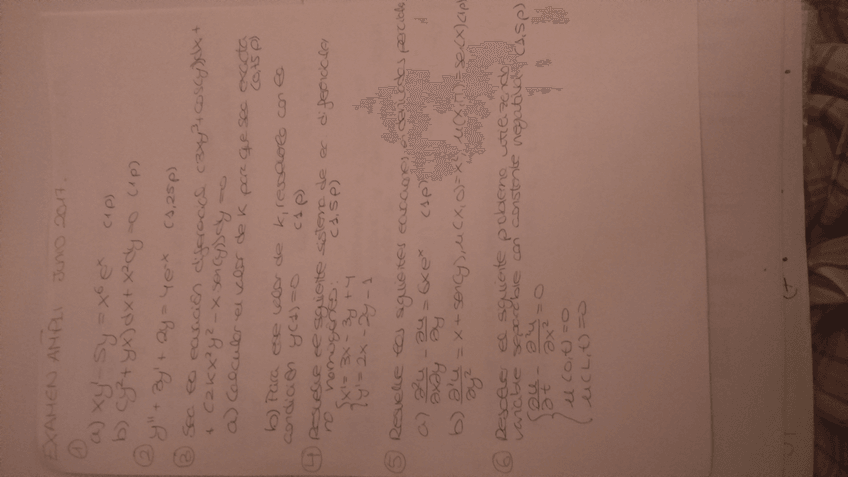 EXAMEN AMPLI JUNIO 2017.
① a) xy' - 5y = x⁶eˣ (1p)
b) (y² + yx)dx + x²dy = 0 (1p)
② y'' + 3y' + 2y = 4eˣ (1,25p)
③ Sea la ecuación diferencial (3xy² + cos(y))dx +
+ (2kx²y² - x sen(y))dy = 0
a) Calcular el valor de k para que sea exacta
(0,75p)
b) Para ese valor de k, resolverla con la
condición y(1) = 0 (1p)
④ Resuelve el siguiente sistema de ec diferencial
no homogéneo: (1,5p)
x' = 3x - 3y + 4
y' = 2x - 2y - 1
⑤ Resuelve las siguientes ecuaciones a derivadas parciales
a) ∂²u/∂x∂y - ∂u/∂y = 6xeˣ (1p)
b) ∂²u/∂y² = x + sen(y), u(x,0) = x (1p)
⑥ Resolver el siguiente problema utilizando
variable separable con constante negativa (1,5p)
∂u/∂t - ∂²u/∂x² = 0
u(0,t) = 0
u(L,t) = 0